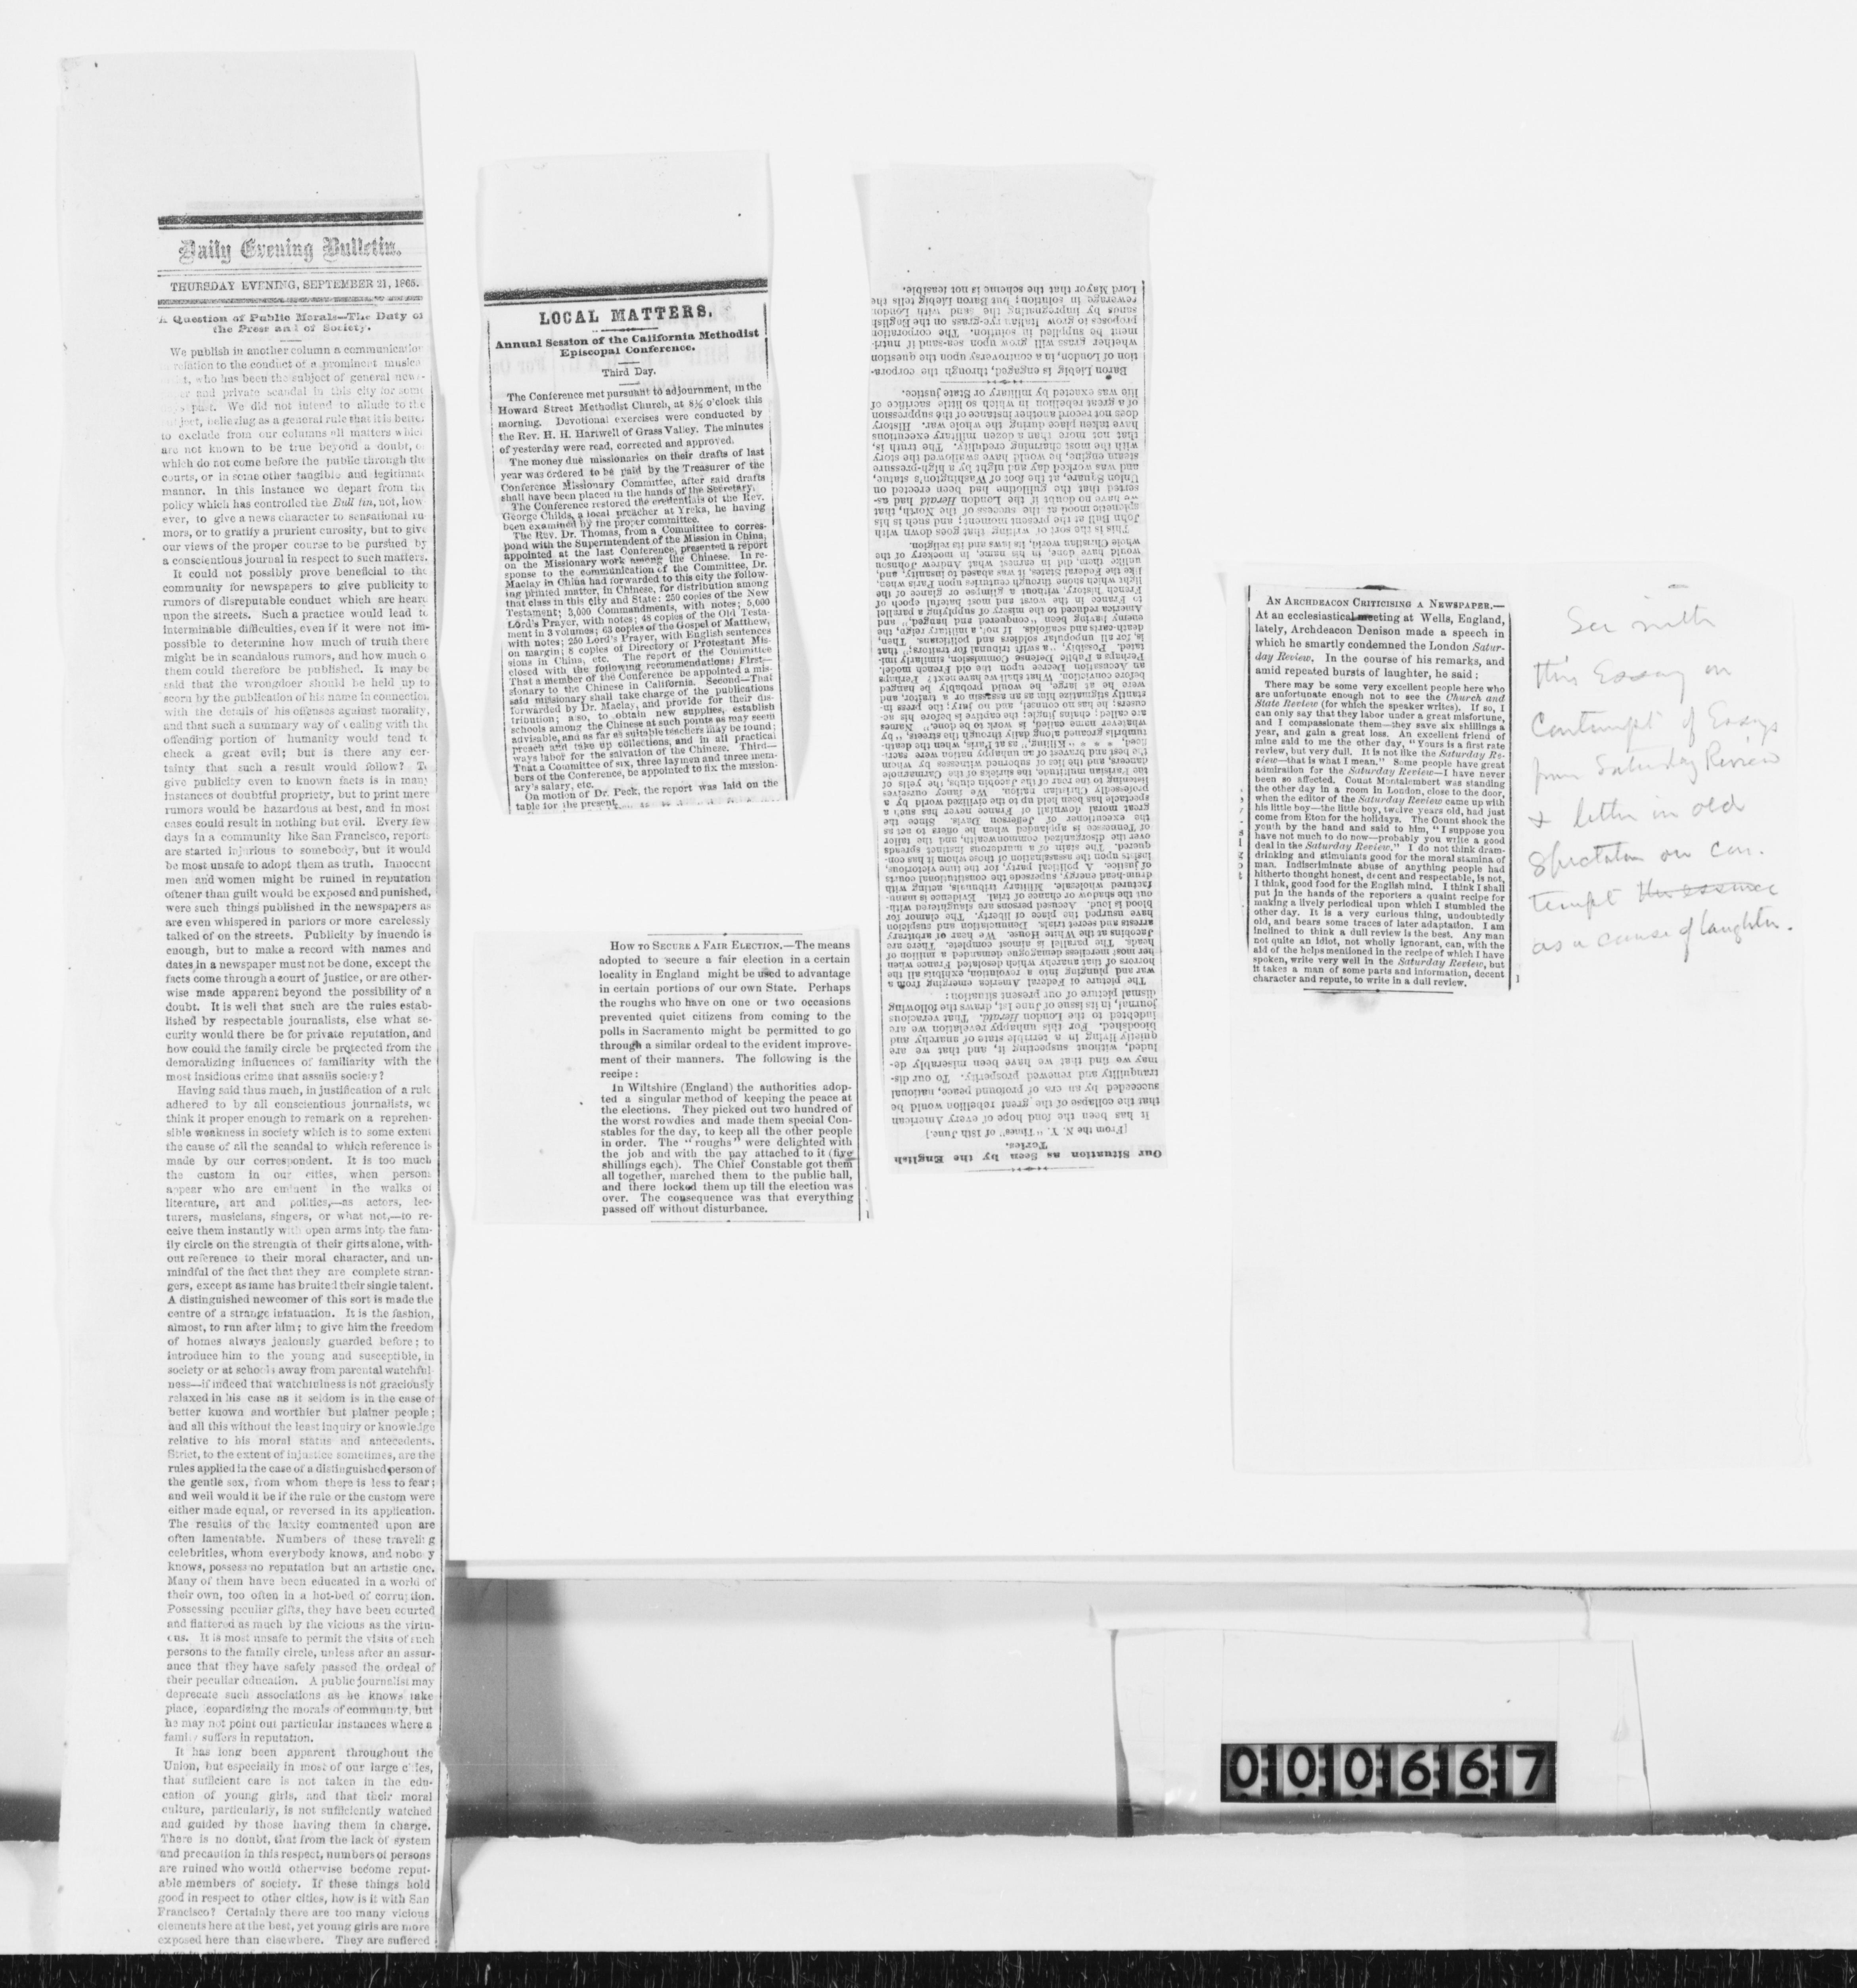 Daily Evening Bulletin.
THURSDAY EVENING, SEPTEMBER 21, 1865.
A Question of Public Morals—The Duty of
the Press and of Society.
We publish in another column a communication
relation to the conduct of a prominent musica
t, who has been the subject of general news-
er and private scandal in this city for some
ys past. We did not intend to allude to the
ject, believing as a general rule that it is better
to exclude from our columns all matters which
are not known to be true beyond a doubt, o
which do not come before the public through the
courts, or in some other tangible and legitimate
manner. In this instance we depart from the
policy which has controlled the Bull tin, not, how
ever, to give a news character to sensational ru-
mors, or to gratify a prurient curosity, but to give
our views of the proper course to be purshed by
a conscientious journal in respect to such matters.
It could not possibly prove beneficial to the
community for newspapers to give publicity to
rumors of disreputable conduct which are heard
upon the streets. Such a practice would lead to
interminable difficulties, even if it were not im-
possible to determine how much of truth there
might be in scandalous rumors, and how much o
them could therefore be published. It may be
said that the wrongdoer should be held up to
scorn by the publication of his name in connection
with the details of his offenses against morality,
and that such a summary way of dealing with the
offending portion of humanity would tend to
check a great evil; but is there any cer-
tainty that such a result would follow? To
give publicity even to known facts is in many
instances of doubtful propriety, but to print mere
rumors would be hazardous at best, and in most
cases could result in nothing but evil. Every few
days in a community like San Francisco, reports
are started injurious to somebody, but it would
be most unsafe to adopt them as truth. Innocent
men and women might be ruined in reputation
oftener than guilt would be exposed and punished,
were such things published in the newspapers as
are even whispered in parlors or more carelessly
talked of on the streets. Publicity by inuendo is
enough, but to make a record with names and
dates in a newspaper must not be done, except the
facts come through a court of justice, or are other-
wise made apparent beyond the possibility of a
doubt. It is well that such are the rules estab-
lished by respectable journalists, else what se-
curity would there be for private reputation, and
how could the family circle be protected from the
demoralizing influences of familiarity with the
most insidious crime that assails society?
Having said thus much, in justification of a rule
adhered to by all conscientious journalists, we
think it proper enough to remark on a reprehen-
sible weakness in society which is to some extent
the cause of all the scandal to which reference is
made by our correspondent. It is too much
the custom in our cities, when persons
appear who are eminent in the walks of
literature, art and politics,—as actors, lec-
turers, musicians, singers, or what not,—to re-
ceive them instantly with open arms into the fam-
ily circle on the strength of their gifts alone, with-
out reference to their moral character, and un-
mindful of the fact that they are complete stran-
gers, except as fame has bruited their single talent.
A distinguished newcomer of this sort is made the
centre of a strange infatuation. It is the fashion,
almost, to run after him; to give him the freedom
of homes always jealously guarded before; to
introduce him to the young and susceptible, in
society or at schools away from parental watchful-
ness—if indeed that watchfulness is not graciously
relaxed in his case as it seldom is in the case of
better known and worthier but plainer people;
and all this without the least inquiry or knowledge
relative to his moral status and antecedents.
Strict, to the extent of injustice sometimes, are the
rules applied in the case of a distinguished person of
the gentle sex, from whom there is less to fear;
and well would it be if the rule or the custom were
either made equal, or reversed in its application.
The results of the laxity commented upon are
often lamentable. Numbers of these traveling
celebrities, whom everybody knows, and nobo y
knows, possess no reputation but an artistic one.
Many of them have been educated in a world of
their own, too often in a hot-bed of corruption.
Possessing peculiar gifts, they have been courted
and flattered as much by the vicious as the virtu-
ous. It is most unsafe to permit the visits of such
persons to the family circle, unless after an assur-
ance that they have safely passed the ordeal of
their peculiar education. A public journalist may
deprecate such associations as he knows take
place, eopardizing the morals of community, but
he may not point out particular instances where a
family suffers in reputation.
It has long been apparent throughout the
Union, but especially in most of our large c ies,
that sufficient care is not taken in the edu-
cation of young girls, and that their moral
culture, particularly, is not sufficiently watched
and guided by those having them in charge.
There is no doubt, that from the lack of system
and precaution in this respect, numbers of persons
are ruined who would otherwise become reput-
able members of society. If these things hold
good in respect to other cities, how is it with San
Francisco? Certainly there are too many vicious
elements here at the best, yet young girls are more
exposed here than elsewhere. They are suffered
LOCAL MATTERS.
Annual Session of the California Methodist
Episcopal Conference.
Third Day.
The Conference met pursuant to adjournment, in the
Howard Street Methodist Church, at 8½ o'clock this
morning. Devotional exercises were conducted by
the Rev. H. H. Hartwell of Grass Valley. The minutes
of yesterday were read, corrected and approved.
The money due missionaries on their drafts of last
year was ordered to be paid by the Treasurer of the
Conference Missionary Committee, after said drafts
shall have been placed in the hands of the Secretary.
The Conference restored the credentials of the Rev.
George Childs, a local preacher at Yreka, he having
been examined by the proper committee.
The Rev. Dr. Thomas, from a Committee to corres-
pond with the Superintendent of the Mission in China,
appointed at the last Conference, presented a report
on the Missionary work among the Chinese. In re-
sponse to the communication of the Committee, Dr.
Maclay in China had forwarded to this city the follow-
ing printed matter, in Chinese, for distribution among
that class in this city and State: 250 copies of the New
Testament; 5,000 Commandments, with notes; 5,000
Lord's Prayer, with notes; 48 copies of the Old Testa-
ment in 3 volumes; 63 copies of the Gospel of Matthew,
with notes; 250 Lord's Prayer, with English sentences
on margin; 8 copies of Directory of Protestant Mis-
sions in China, etc. The report of the Committee
closed with the following recommendations: First—
That a member of the Conference be appointed a mis-
sionary to the Chinese in California. Second—That
said missionary shall take charge of the publications
forwarded by Dr. Maclay, and provide for their dis-
tribution; also, to obtain new supplies, establish
schools among the Chinese at such points as may seem
advisable, and as far as suitable teachers may be found;
preach and take up collections, and in all practical
ways labor for the salvation of the Chinese. Third—
That a Committee of six, three laymen and three mem-
bers of the Conference, be appointed to fix the mission-
ary's salary, etc.
On motion of Dr. Peck, the report was laid on the
table for the present.
HOW TO SECURE A FAIR ELECTION.—The means
adopted to secure a fair election in a certain
locality in England might be used to advantage
in certain portions of our own State. Perhaps
the roughs who have on one or two occasions
prevented quiet citizens from coming to the
polls in Sacramento might be permitted to go
through a similar ordeal to the evident improve-
ment of their manners. The following is the
recipe:
In Wiltshire (England) the authorities adop-
ted a singular method of keeping the peace at
the elections. They picked out two hundred of
the worst rowdies and made them special Con-
stables for the day, to keep all the other people
in order. The "roughs" were delighted with
the job and with the pay attached to it (five
shillings each). The Chief Constable got them
all together, marched them to the public hall,
and there locked them up till the election was
over. The consequence was that everything
passed off without disturbance.
Our Situation as Seen by the English
Tories.
[From the N. Y. "Times" of 15th June.]
It has been the fond hope of every American
that the collapse of the great rebellion would be
succeeded by an era of profound peace, national
tranquility and renewed prosperity. To our dis-
may we find that we have been miserably de-
luded, without suspecting it, and that we are
quietly living in a terrible state of anarchy and
bloodshed. For this unhappy revelation we are
indebted to the London Herald. That veracious
journal, in its issue of June 1st, draws the following
dismal picture of our present situation:
The picture of Federal America emerging from a
war and plunging into a revolution, exhibits all the
horrors of that anarchy which desolated France when
her most merciless demagogue demanded a million of
heads. The parallel is almost complete. There are
Jacobins at the White House. We hear of arbitrary
arrests and secret trials. Denunciation and suspicion
have usurped the place of liberty. The clamor for
blood is loud. Accused persons are slaughtered with-
out the shadow or chance of trial. Evidence is manu-
factured wholesale. Military tribunals, acting with
drum-head energy, supersede the constitutional courts
of justice. A political party, for the time victorious,
insists upon the assassination of those whom it has con-
quered. The stain of a murderous instinct spreads
over the disorganized commonwealth, and the tailor
of Tennessee is applauded when he offers to act as
the executioner of Jefferson Davis. Since the
great moral downfall of France never has such a
spectacle has been held up to the civilized world by a
professedly Christian nation. We fancy ourselves
listening to the roar of the Jacobin clubs, the yells of
the Parisian multitude, the shrieks of the Carmagnole
dancers, and the lies of suborned witnesses by whom
the best and bravest of an unhappy nation were sacri-
ficed. * * * "Killing," as at Paris, when the death-
tumbrils groaned along daily through the streets, "by
whatever name called, is work to be done." Names
are called; chains jingle; the captive is before his ac-
cusers; he has no counsel, and no jury; the press in-
stantly stigmatize him as an assassin or a traitor, and
were he at large, he would probably be hanged
before conviction. What shall we have next? Perhaps
an Accusation Decree upon the old French model.
Perhaps a Public Defense Commission, similarly imi-
tated. Possibly, "a swift tribunal for traitors;" that
is, for all unpopular soldiers and politicians. Then,
death-carts and scaffolds. If not, a military reign, the
enemy having been "conquered and hanged," and
America reduced to the misery of supplying a parallel
to France in the worst and most hateful epoch of
French history, without a glimpse or glance of the
light which shone through centuries upon Paris when,
like the Federal States, it was abased to insanity, and,
unlike them, did in earnest what Andrew Johnson
would have done, in his name, in mockery of the
whole Christian world, its laws and its religion.
This is the sort of writing that goes down with
John Bull at the present moment; and such is his
splenetic mood at the success of the North, that
we have no doubt if the London Herald had as-
serted that the guillotine had been erected on
Union Square, at the foot of Washington's statue,
and was worked day and night by a high-pressure
steam engine, he would have swallowed the story
with the most charming credulity. The truth is,
that not more than a dozen military executions
have taken place during the whole war. History
does not record another instance of the suppression
of a great rebellion in which so little sacrifice of
life was exacted by military or State justice.
Baron Liebig is engaged, through the corpora-
tion of London, in a controversy upon the question
whether grass will grow upon sea-sand if nutri-
ment be supplied in solution. The corporation
proposes to grow Italian rye-grass on the English
sands by impregnating the sand with London
sewerage in solution; but Baron Liebig tells the
Lord Mayor that the scheme is not feasible.
AN ARCHDEACON CRITICISING A NEWSPAPER.—
At an ecclesiastical meeting at Wells, England,
lately, Archdeacon Denison made a speech in
which he smartly condemned the London Satur-
day Review. In the course of his remarks, and
amid repeated bursts of laughter, he said:
There may be some very excellent people here who
are unfortunate enough not to see the Church and
State Review (for which the speaker writes). If so, I
can only say that they labor under a great misfortune,
and I compassionate them—they save six shillings a
year, and gain a great loss. An excellent friend of
mine said to me the other day, "Yours is a first rate
review, but very dull. It is not like the Saturday Re-
view—that is what I mean." Some people have great
admiration for the Saturday Review—I have never
been so affected. Count Montalembert was standing
the other day in a room in London, close to the door,
when the editor of the Saturday Review came up with
his little boy—the little boy, twelve years old, had just
come from Eton for the holidays. The Count shook the
youth by the hand and said to him, "I suppose you
have not much to do now—probably you write a good
deal in the Saturday Review." I do not think dram-
drinking and stimulants good for the moral stamina of
man. Indiscriminate abuse of anything people had
hitherto thought honest, decent and respectable, is not,
I think, good food for the English mind. I think I shall
put in the hands of the reporters a quaint recipe for
making a lively periodical upon which I stumbled the
other day. It is a very curious thing, undoubtedly
old, and bears some traces of later adaptation. I am
inclined to think a dull review is the best. Any man
not quite an idiot, not wholly ignorant, can, with the
aid of the helps mentioned in the recipe of which I have
spoken, write very well in the Saturday Review, but
it takes a man of some parts and information, decent
character and repute, to write in a dull review.
this Essay on
Contempt of Essays
from Saturday Review
& letter in old
Spectator on con-
tempt
as a cause of laughter.
000667